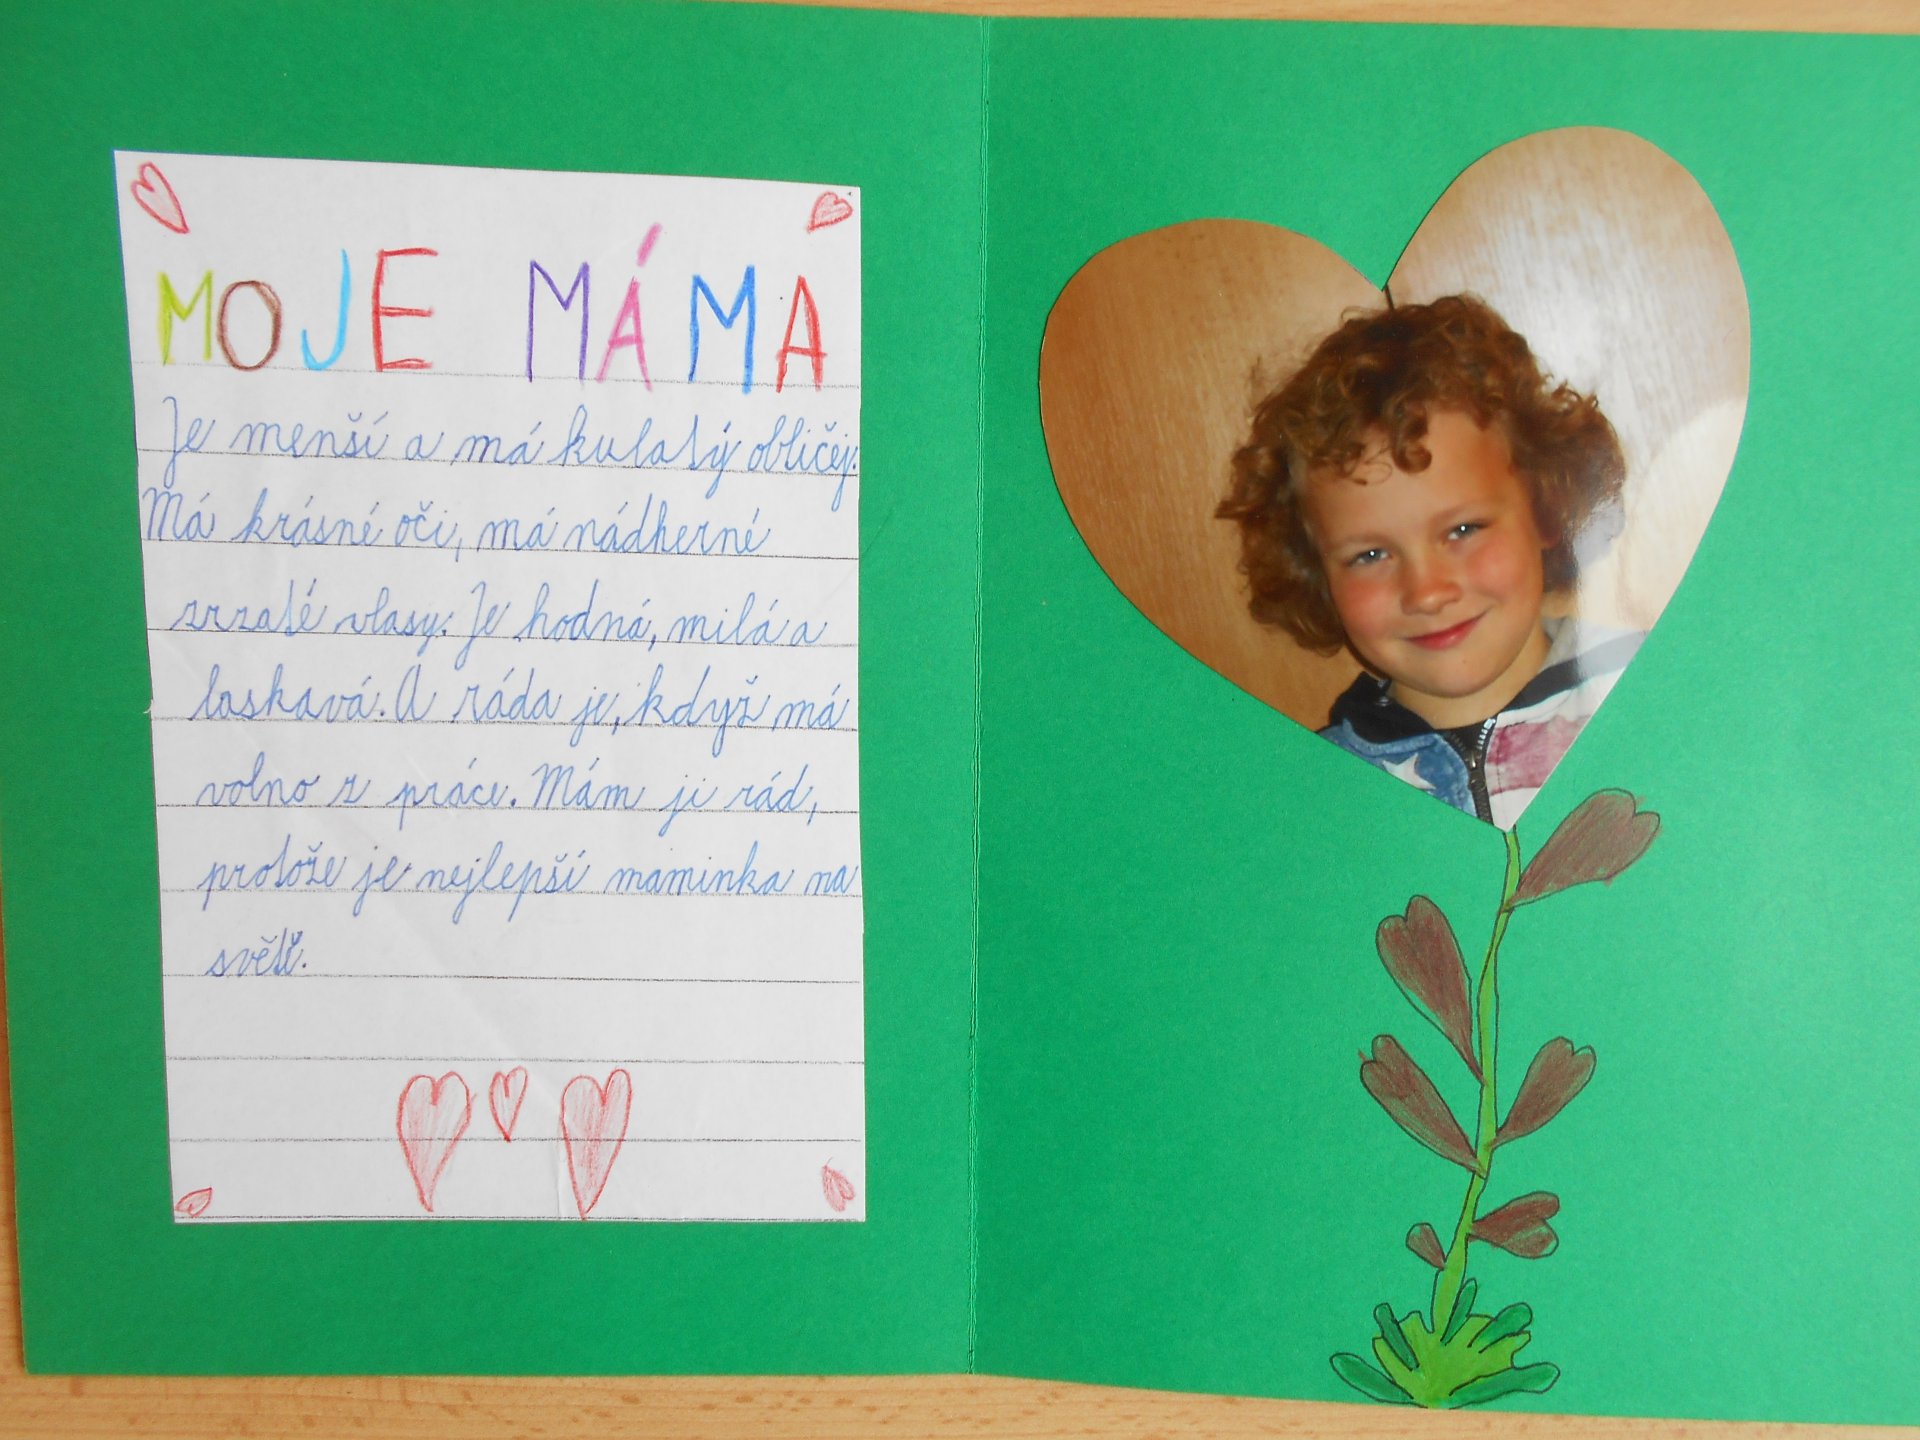 MOJE MÁMA
Je menší a má kulatý obličej.
Má krásné oči, má nádherné
zrzaté vlasy. Je hodná, milá a
laskavá. A ráda je, když má
volno z práce. Mám ji rád,
protože je nejlepší maminka na
světě.